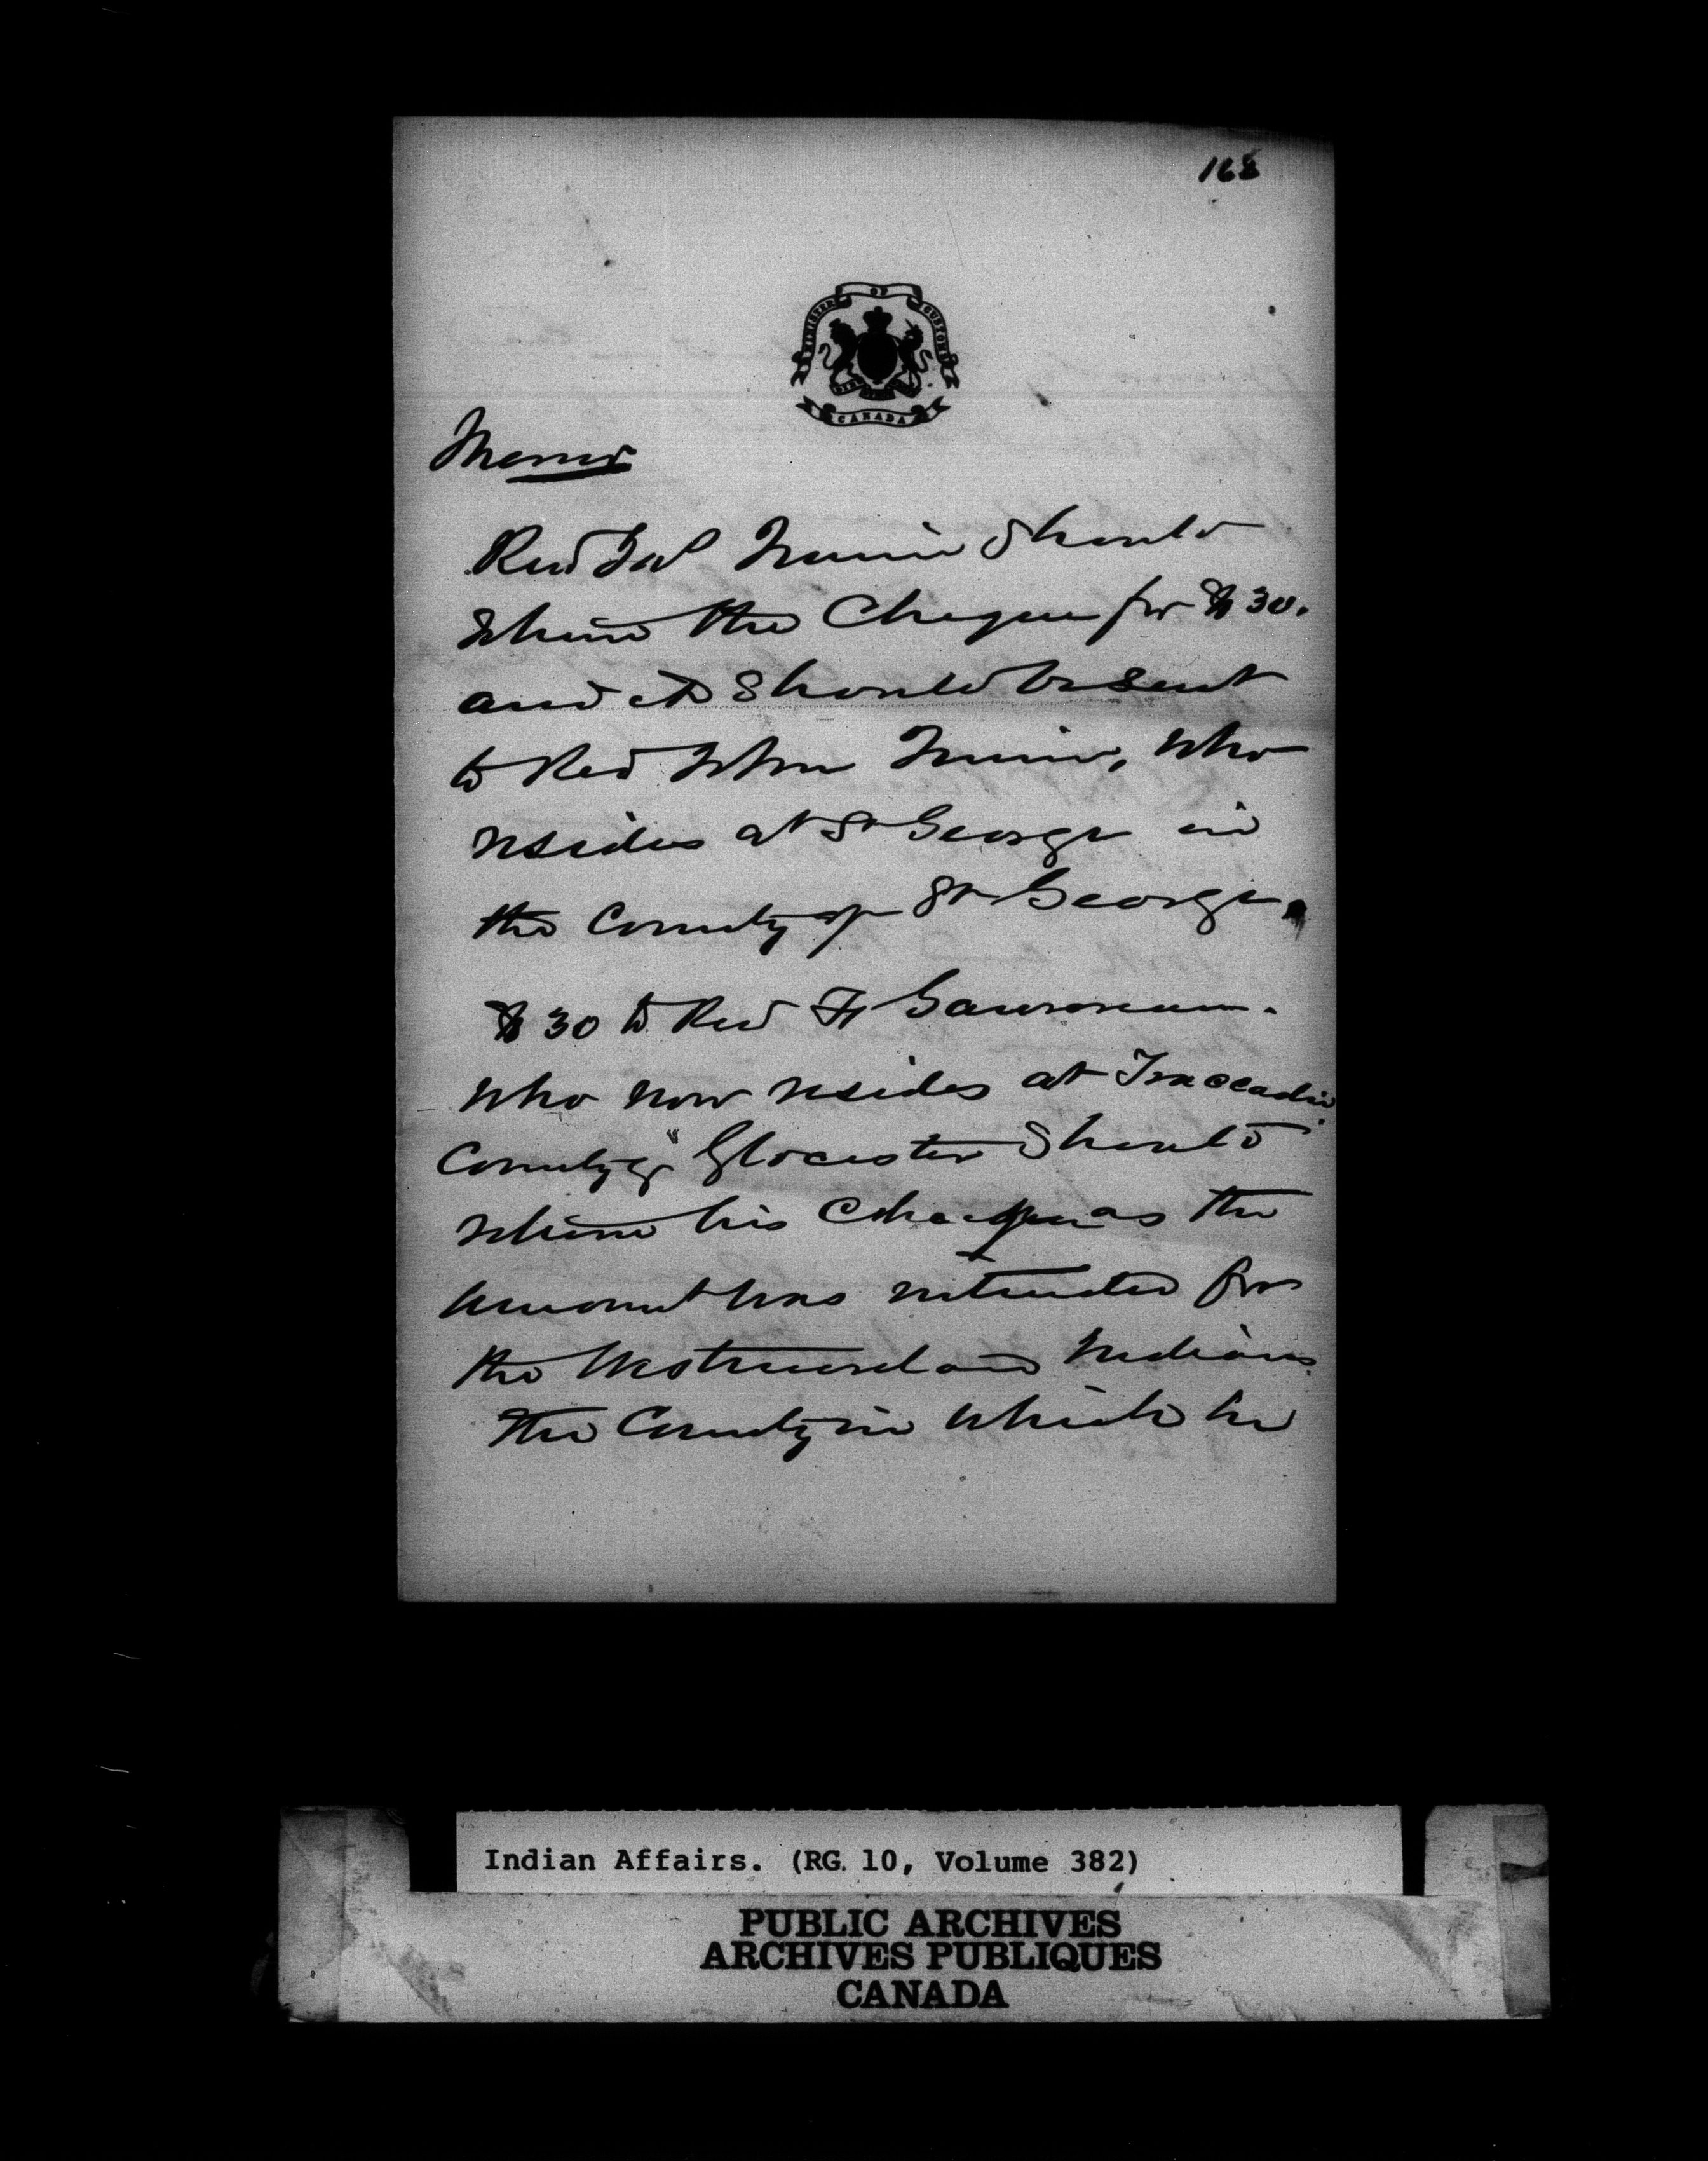 168
MINISTER OF CUSTOMS
CANADA
Memo
Revd Jas Quinn Should
return the Cheque for $30.
and it Should be Sent
to Rev John Quinn, who
resides at St George in
the County of St George.
$30 to Rev F Gauvreau.
who now resides at Traccadie
County of Glocester Should
return his Cheque as the
amount was intended for
the Westmoreland Indians.
the County in which he
Indian Affairs. (RG. 10, Volume 382)
PUBLIC ARCHIVES
ARCHIVES PUBLIQUES
CANADA